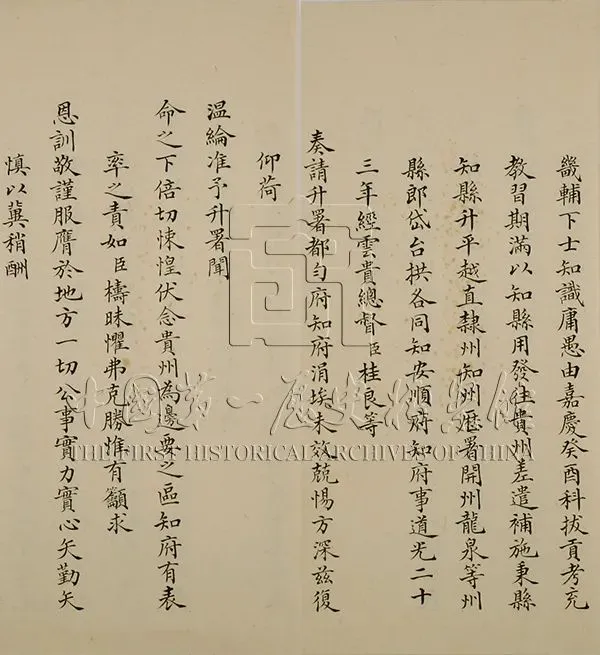 畿輔下士知識庸愚由嘉慶癸酉科拔貢考充
教習期滿以知縣用發往貴州差遣補施秉縣
知縣升平越直隸州知州歷署開州龍泉等州
縣郎岱台拱各同知安順府知府事道光二十
三年經雲貴總督臣桂良等
奏請升署都勻府知府涓埃未效兢惕方深茲復
仰荷
温綸准予升署聞
命之下倍切悚惶伏念貴州為邊要之區知府有表
率之責如臣檮昧懼弗克勝惟有籲求
恩訓敬謹服膺於地方一切公事實力實心矢勤矢
慎以冀稍酬
中國第一歷史檔案館
THE FIRST HISTORICAL ARCHIVES OF CHINA